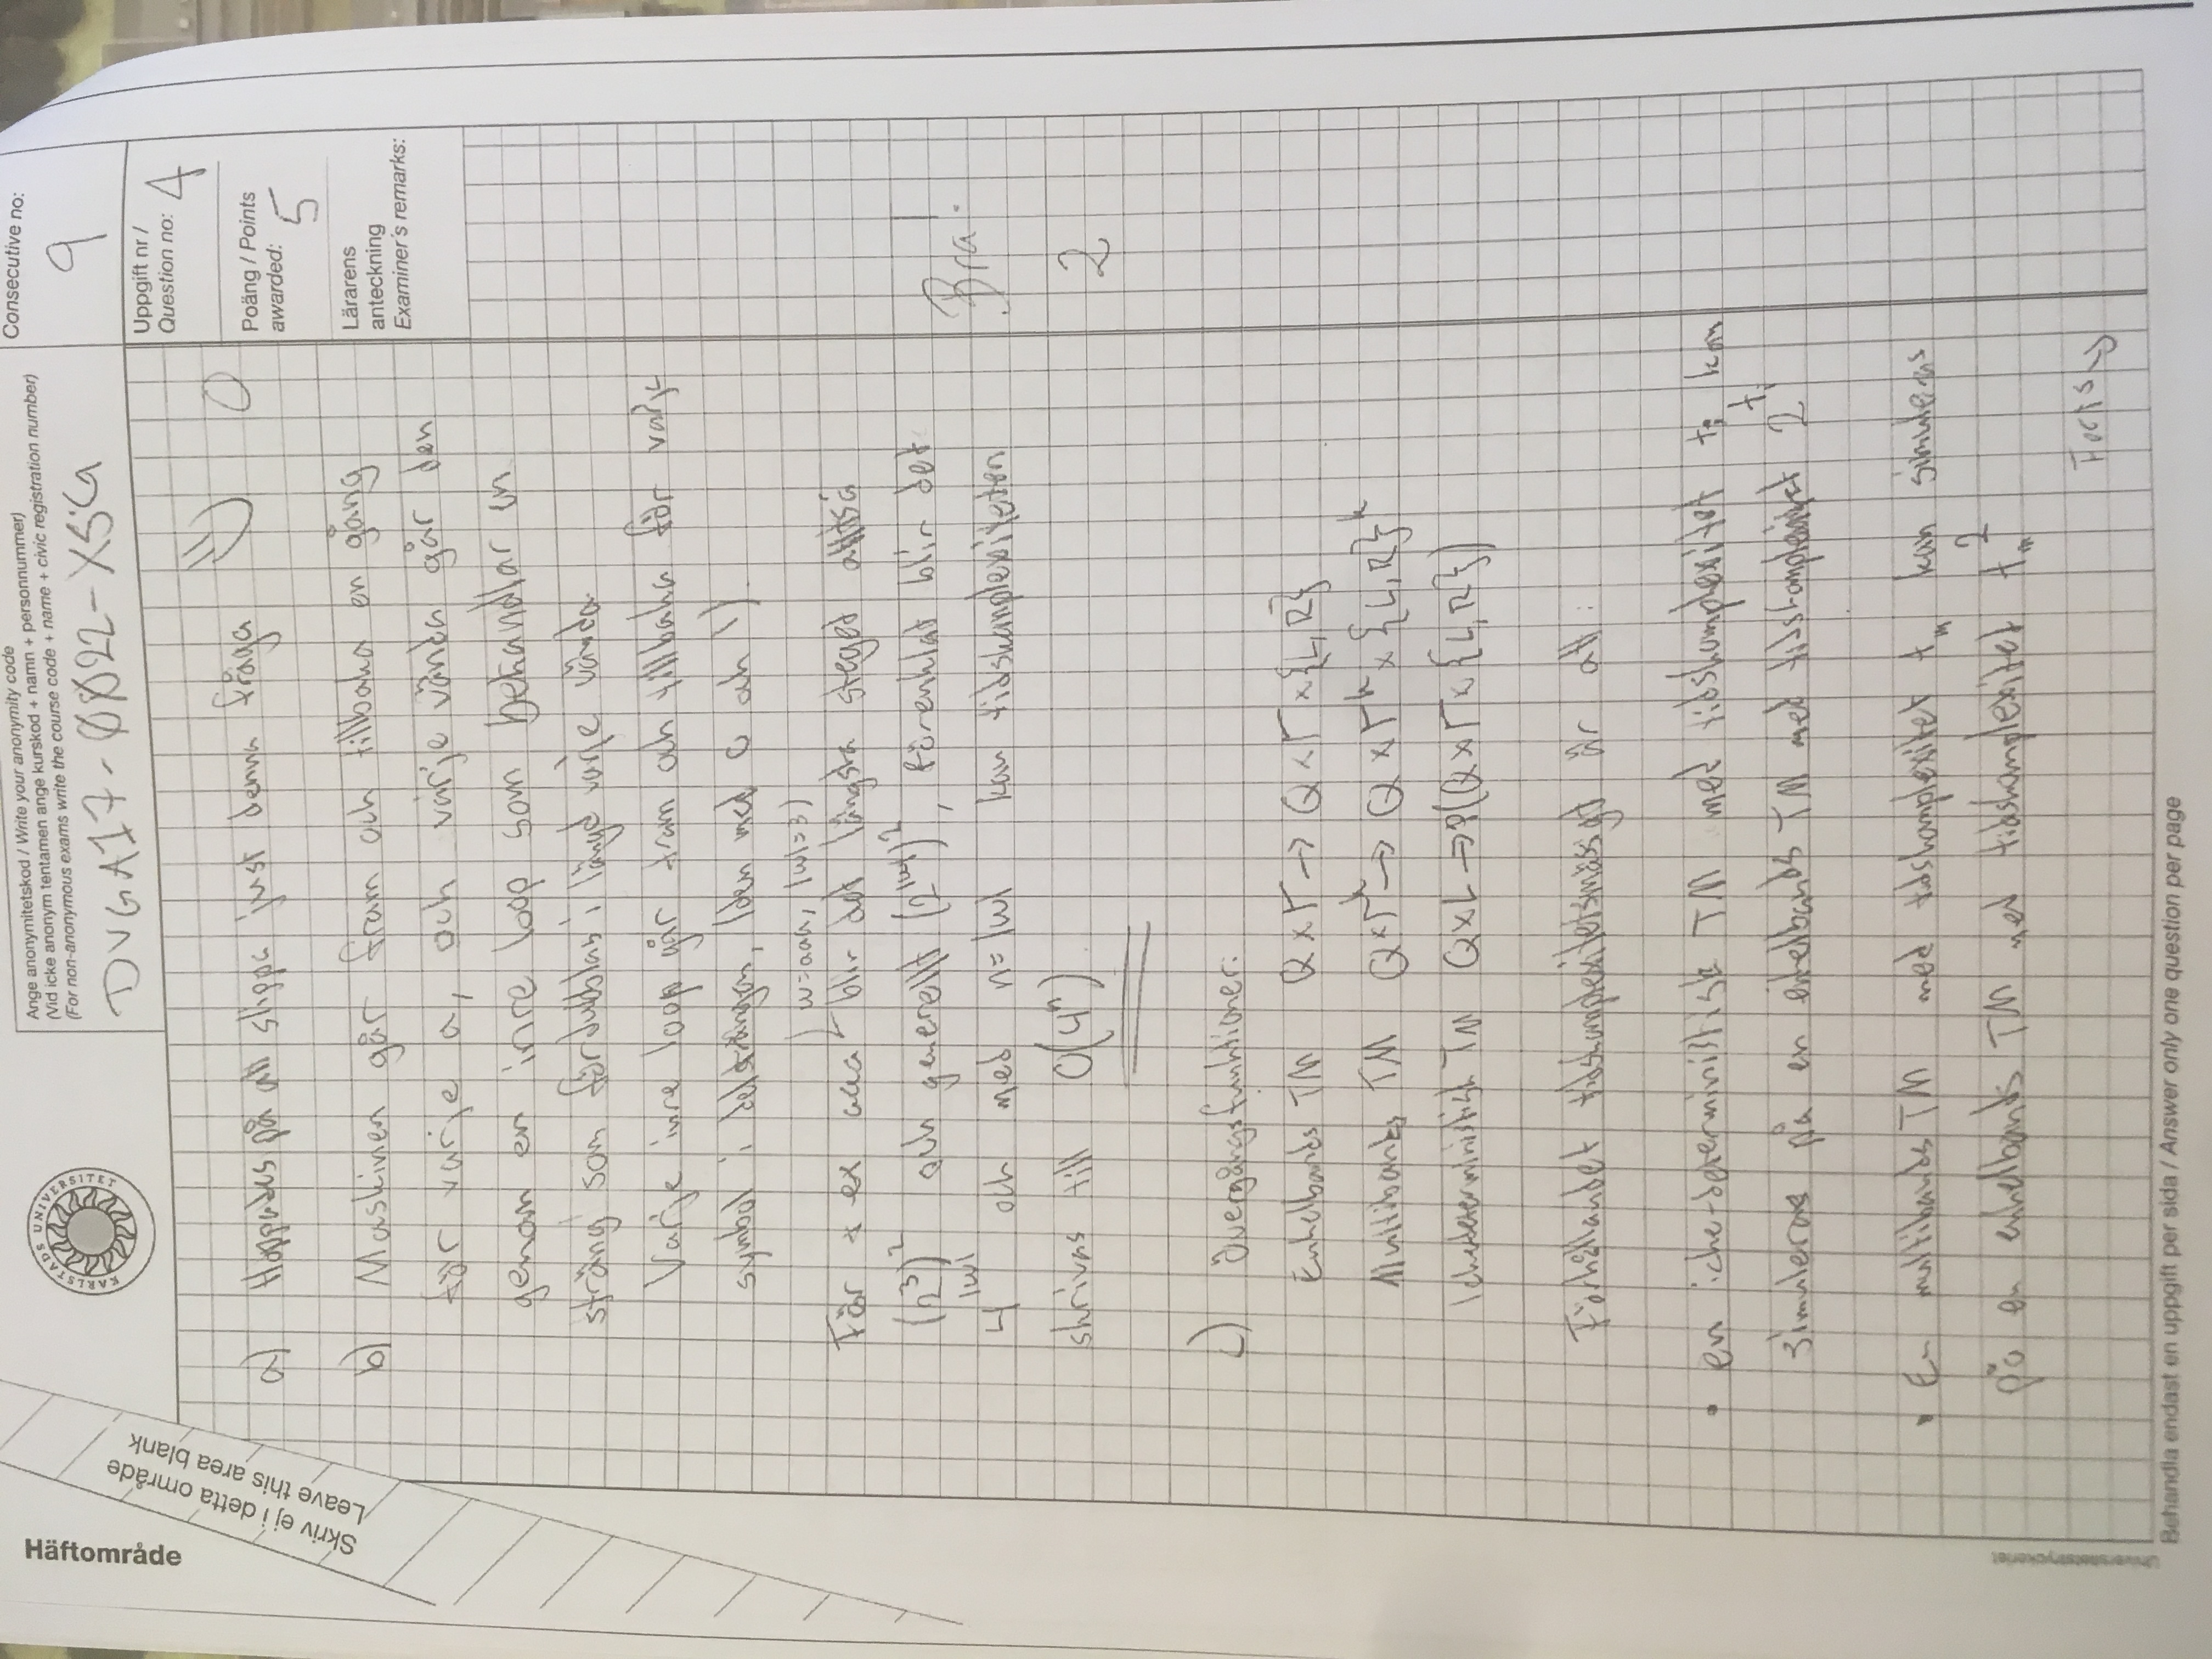 Häftområde
Skriv ej i detta område
Leave this area blank
KARLSTADS UNIVERSITET
Ange anonymitetskod / Write your anonymity code
(Vid icke anonym tentamen ange kurskod + namn + personnummer)
(For non-anonymous exams write the course code + name + civic registration number)
DVGA17-0022-X5G
Consecutive no:
9
Uppgift nr /
Question no: 4
Poäng / Points
awarded: 5
Lärarens
anteckning
Examiner's remarks:
a) Hoppades på att slippa just denna fråga 0
b) Maskinen går fram och tillbaka en gång
för varje a, och varje vända går den
genom en inre loop som behandlar en
sträng som fördubblas i längd varje vända.
Varje inre loop går fram och tillbaka för varje
symbol i delsträngen, (den med c och 1).
(w=aaa, |w|=3)
För t ex aaa blir det längsta steget alltså
(2^3)^2 och generellt (2^|w|)^2, förenklat blir det
4^|w| och med n=|w| kan tidskomplexiteten
skrivas till O(4^n)
Bra!
2
c) Övergångsfunktioner:
Enkelbands TM Q×Γ → Q×Γ×{L,R}
Multibands TM Q×Γ^k → Q×Γ^k×{L,R}^k
Ickedeterministisk TM Q×Γ → P(Q×Γ×{L,R})
Förhållandet tidskomplexitetsmässigt är att:
• en icke-deterministisk TM med tidskomplexitet t_i kan
simuleras på en enkelbands TM med tidskomplexitet 2^t_i
• En multibands TM med tidskomplexitet t_m kan simuleras
på en enkelbands TM med tidskomplexitet t_m^2
Forts →
Universitetstryckeriet
Behandla endast en uppgift per sida / Answer only one question per page